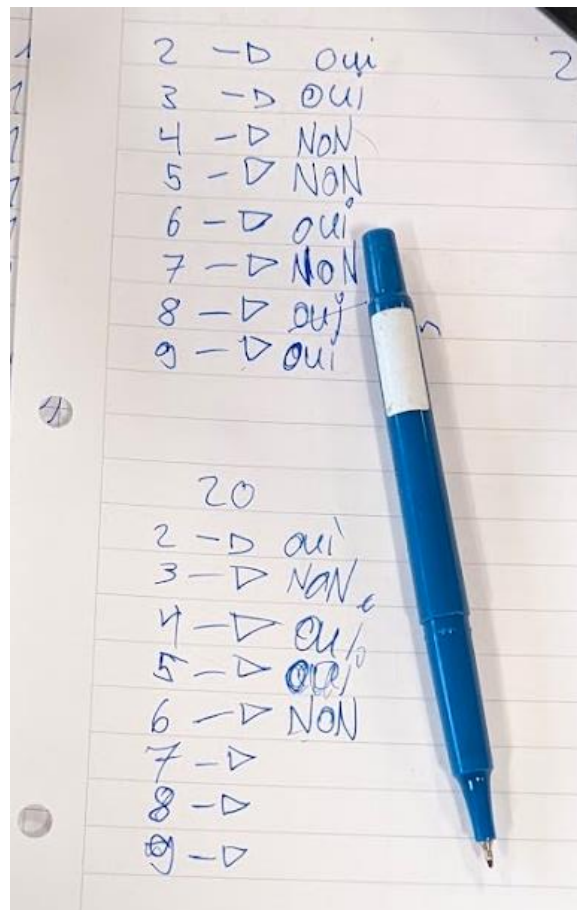 2 → OUI
3 → OUI
4 → NON
5 → NON
6 → OUI
7 → NON
8 → OUI
9 → OUI
2
20
2 → OUI
3 → NON
4 → OUI
5 → OUI
6 → NON
7 →
8 →
9 →